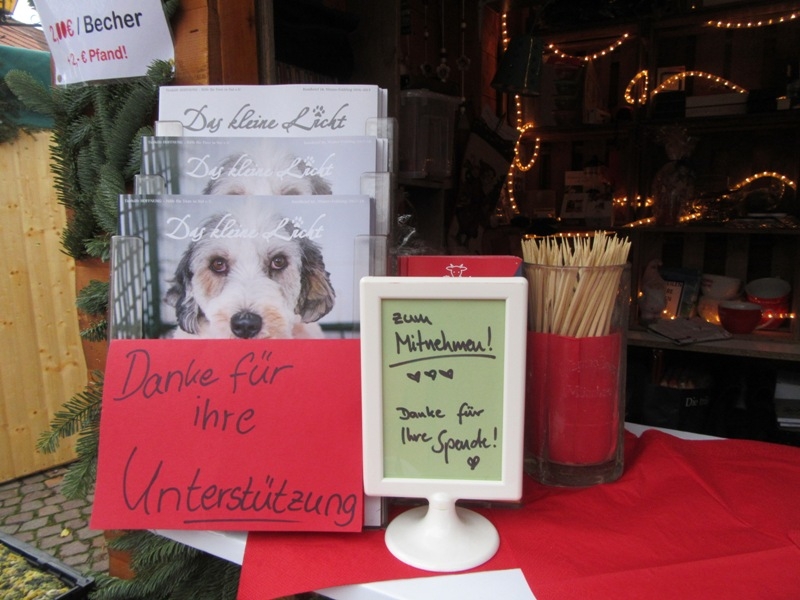 2,00€ / Becher
+2,- € Pfand!
Das kleine Licht
Das kleine Licht
Das kleine Licht
Danke für
ihre
Unterstützung
zum
Mitnehmen!
Danke für
Ihre Spende!